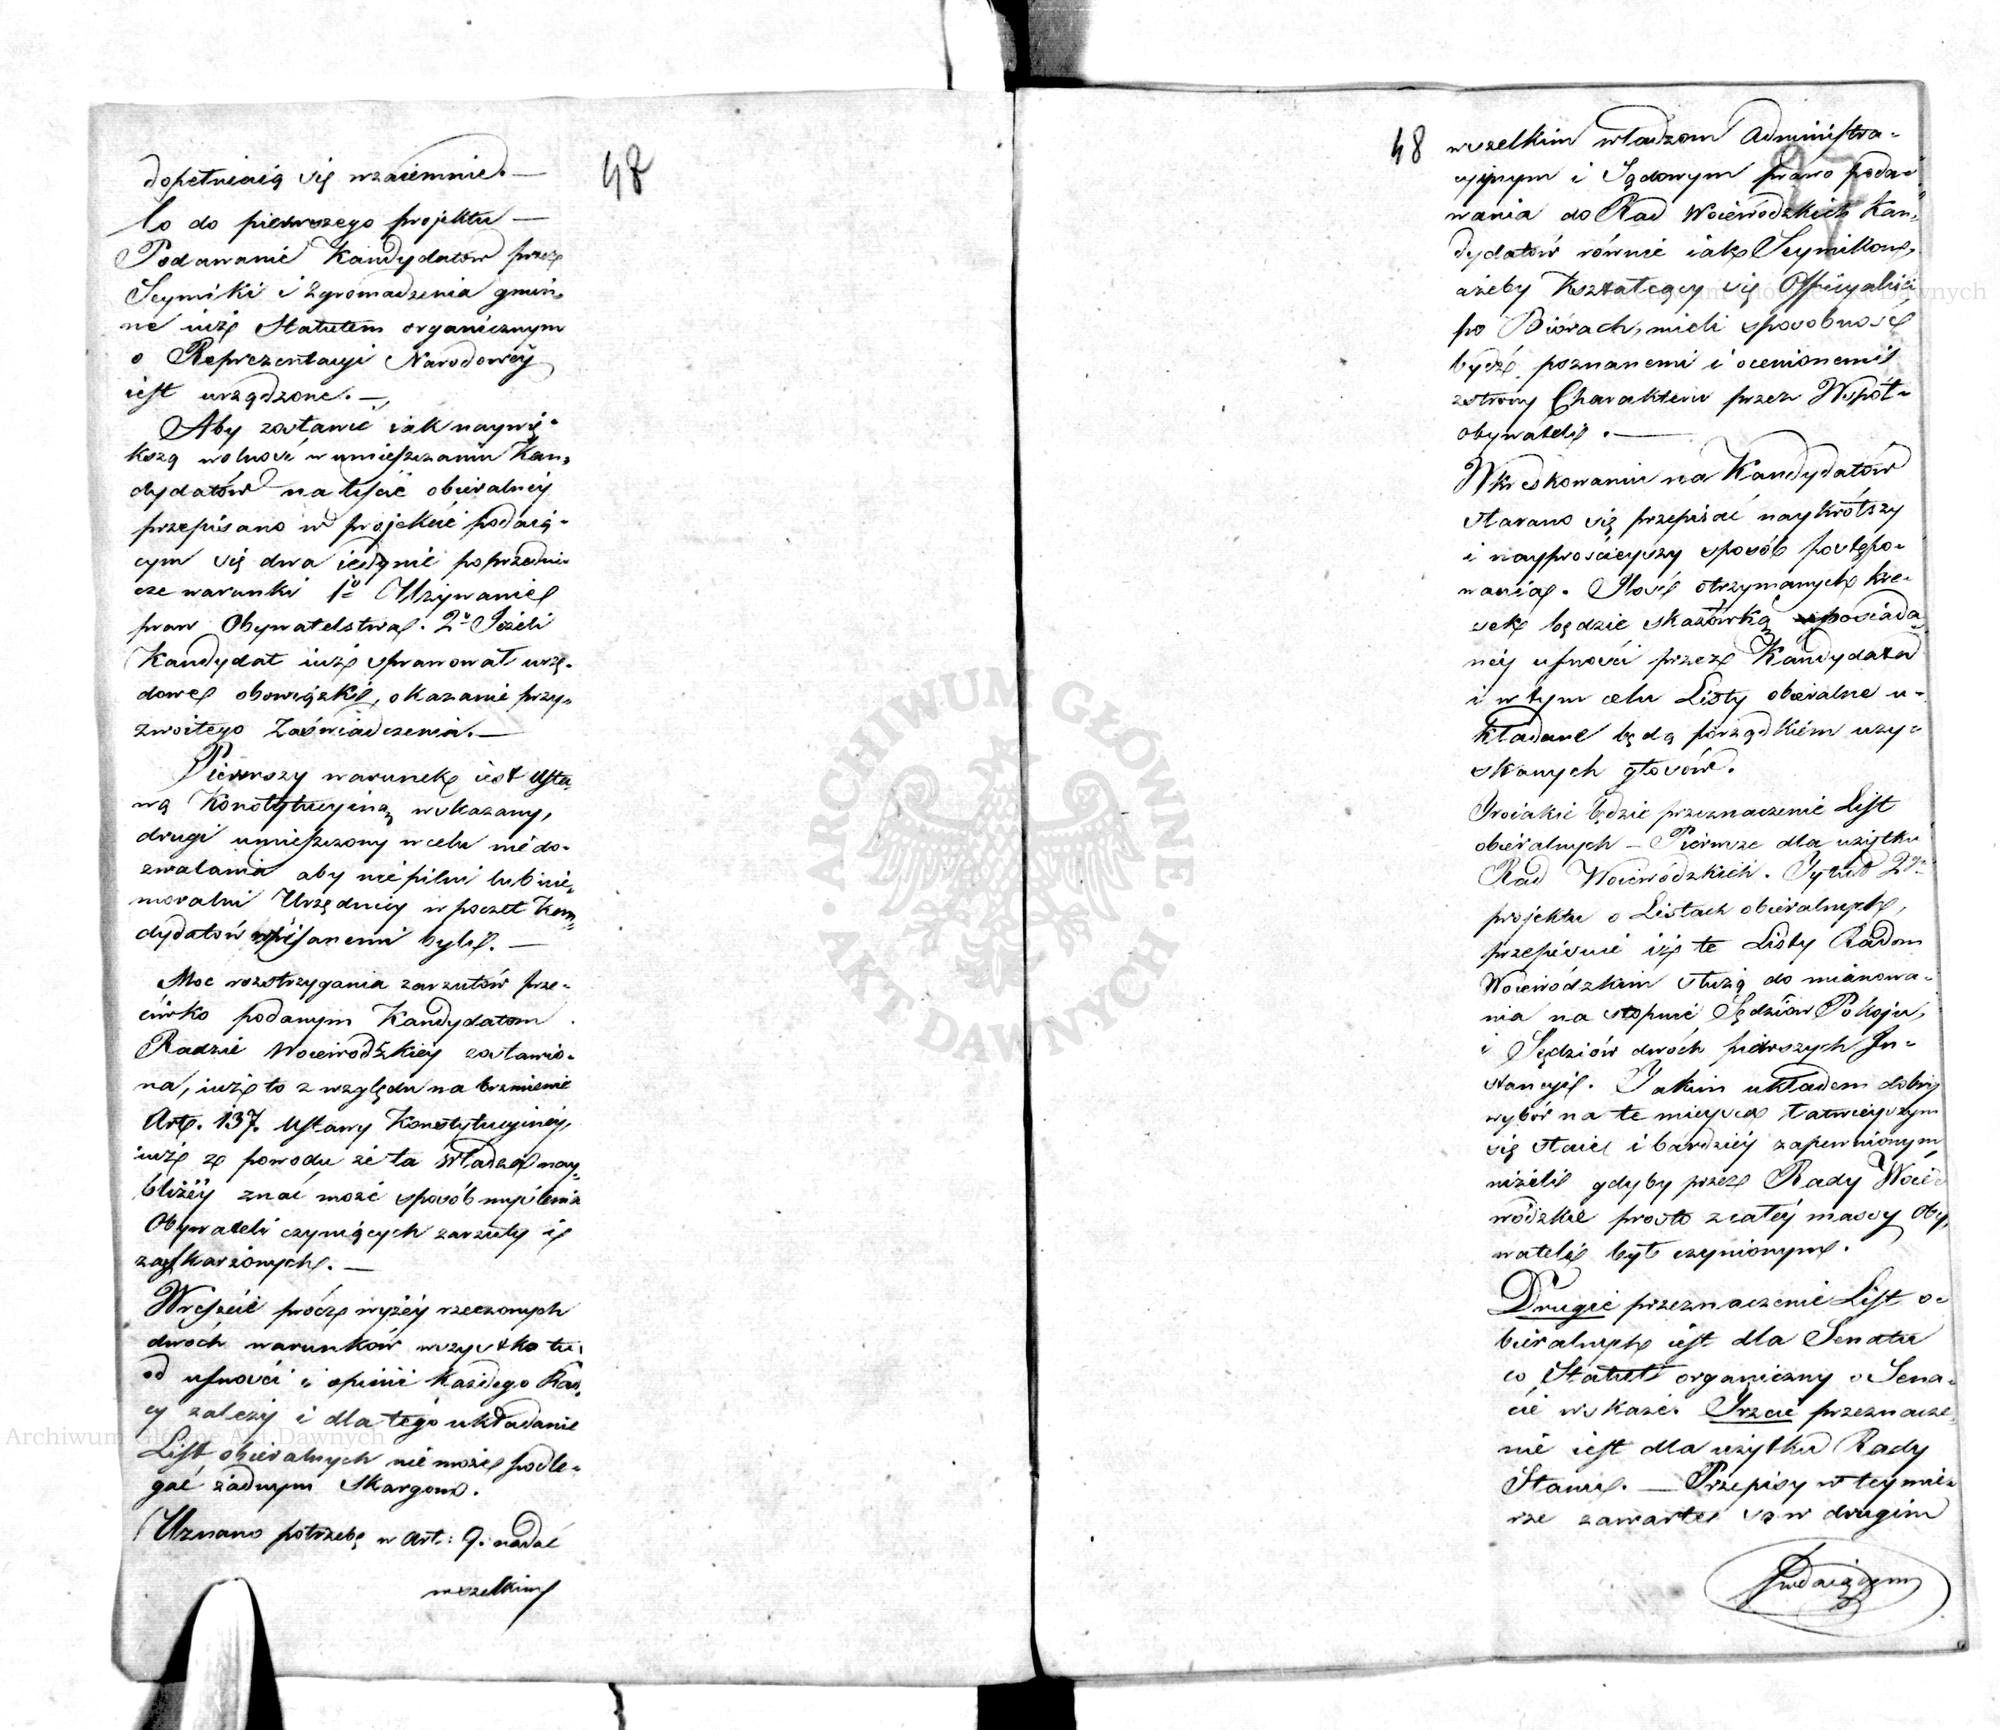 48
dopełniaią się wzaiemnie. —
Co do pierwszego projektu —
Podawanie Kandydatów przez
Seymiki i Zgromadzenia gmin-
ne iuż Statutem organicznym
o Reprezentacyi Narodowéy
iest urządzone. —
Aby zostawić iak naywię-
kszą wolność w umieszczaniu Kan-
dydatów na liście obieralnéy
przepisano w projekcie podaią-
cym się dwa iedynie poprzedni-
cze warunki 1o Używanie
praw Obywatelstwa. 2o Jeżeli
Kandydat iuż sprawował urzę-
dowe obowiązki, okazanie przy-
zwoitego Zaświadczenia. —
Pierwszy warunek iest Usta-
wą Konstytucyiną wskazany,
drugi umieszczony w celu niedo-
zwalania aby niepilni lub nie-
moralni Urzędnicy w poczet Kan-
dydatów wpisanemi byli. —
Moc rozstrzygania zarzutów prze-
ciwko podanym Kandydatom
Radzie Woiewódzkiéy zostawio-
na, iuż to z względu na brzmienie
Art. 137. Ustawy Konstytucyinéy,
iuż z powodu że ta władza nay-
bliżéy znać może sposób myślenia
Obywateli czyniących zarzuty i
zaskarżonych. —
Wreszcie prócz wyżéy rzeczonych
dwóch warunków wszystko tu
od ufności i opinii każdego Rad-
cy zależy i dla tego układanie
List obieralnych nie może podle-
gać żadnym Skargom.
Uznano potrzebę w Art: 9. nadać
wszelkim
48
wszelkim władzom Administra-
cyinym i Sądowym prawo poda-
wania do Rad Woiewódzkich Kan-
dydatów równie iak Seymikom,
ażeby kształcący się Officyaliści
po Biórach, mieli sposobność
bydź poznanemi i ocenionemi
z strony Charakteru przez Współ-
obywateli. —
W kreskowaniu na Kandydatów
starano się przepisać naykrótszy
i nayprościeyszy sposób postępo-
wania. Ilość otrzymanych kre-
sek będzie skazówką posiada-
néy ufności przez Kandydata
i w tym celu Listy obieralne u-
kładane będą porządkiem uzy-
skanych głosów.
Troiakie będzie przeznaczenie List
obieralnych — Pierwsze dla użytku
Rad Woiewódzkich. Tytuł 2gi
projektu o Listach obieralnych,
przepisuie iż te Listy Radom
Woiewódzkim służą do mianowa-
nia na stopnie Sędziów Pokoju,
i Sędziów dwóch pierwszych In-
stancyi. Takim układem dobry
wybór na te mieysca łatwieyszym
się staie i bardziéy zapewnionym,
niżeli gdyby przez Rady Woie-
wódzkie prosto z całéy massy Oby-
wateli był czynionym.
Drugie przeznaczenie List o-
bieralnych iest dla Senatu
co Statut organiczny o Sena-
cie wskaże. Trzecie przeznacze-
nie iest dla użytku Rady
Stanu. — Przepisy w tey mie-
rze zawarte są w drugim
podaiącym
ARCHIWUM GŁÓWNE
AKT DAWNYCH
Archiwum Główne Akt Dawnych
Archiwum Główne Akt Dawnych